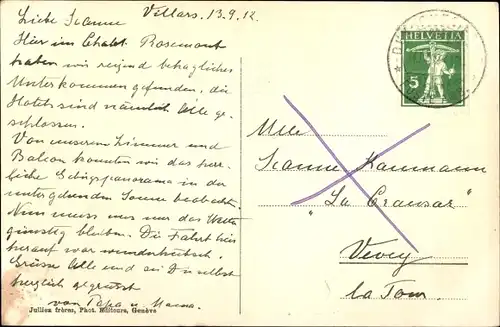 Villars, 13.9.12.
Liebe Jeanne
Hier im Chalet Rosemont
haben wir reizend behagliches
Unterkommen gefunden, die
Hotels sind nämlich Alle ge-
schlossen.
Von unserem Zimmer und
Balcon konnten wir das herr-
liche Gebirgspanorama in der
untergehenden Sonne beobachten.
Nun muss nur das Wetter
günstig bleiben. Die Fahrt hier
herauf war wunderhübsch.
Grüsse Alle und sei Du selbst
herzlich gegrüsst
von Papa u. Mama.
Jullien frères, Phot. Editeurs, Genève
HELVETIA
5
Mlle
Jeanne Kaumann
"La Crausaz"
Vevey
la Tour.